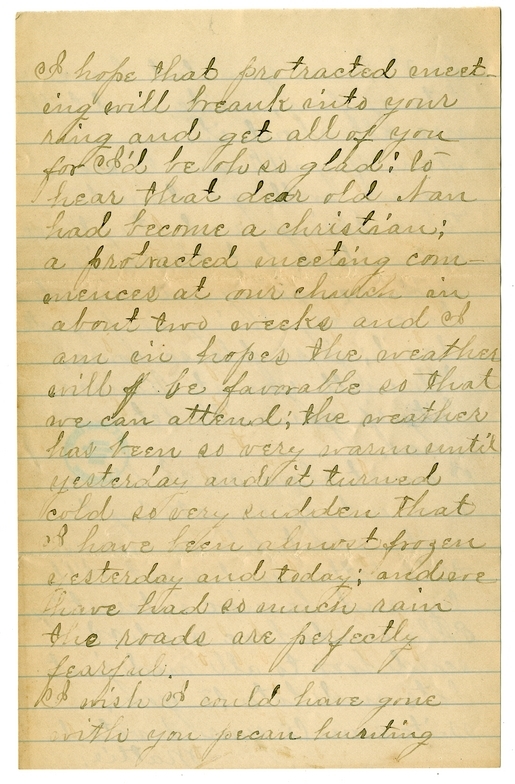 I hope that protracted meet-
ing will breank into your
ring and get all of you
for I'd be oh so glad! to
hear that dear old Nan
had become a christian;
a protracted meeting com-
mences at our church in
about two weeks and I
am in hopes the weather
will be favorable so that
we can attend; the weather
has been so very warm until
yesterday and it turned
cold so very sudden that
I have been almost frozen
yesterday and today; and we
have had so much rain
the roads are perfectly
fearful.
I wish I could have gone
with you pecan hunting